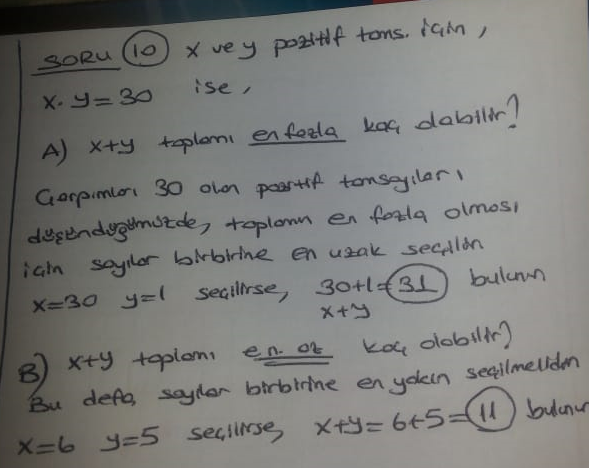 SORU 10 x ve y pozitif tams. için,
x.y=30 ise,
A) x+y toplamı en fazla kaç olabilir?
Çarpımları 30 olan pozitif tamsayıları
düşündüğümüzde, toplamın en fazla olması
için sayılar birbirine en uzak seçilir
x=30 y=1 seçilirse, 30+1=31 bulunur
x+y
B) x+y toplamı en az kaç olabilir?
Bu defa, sayılar birbirine en yakın seçilmelidir
x=6 y=5 seçilirse, x+y=6+5=11 bulunur